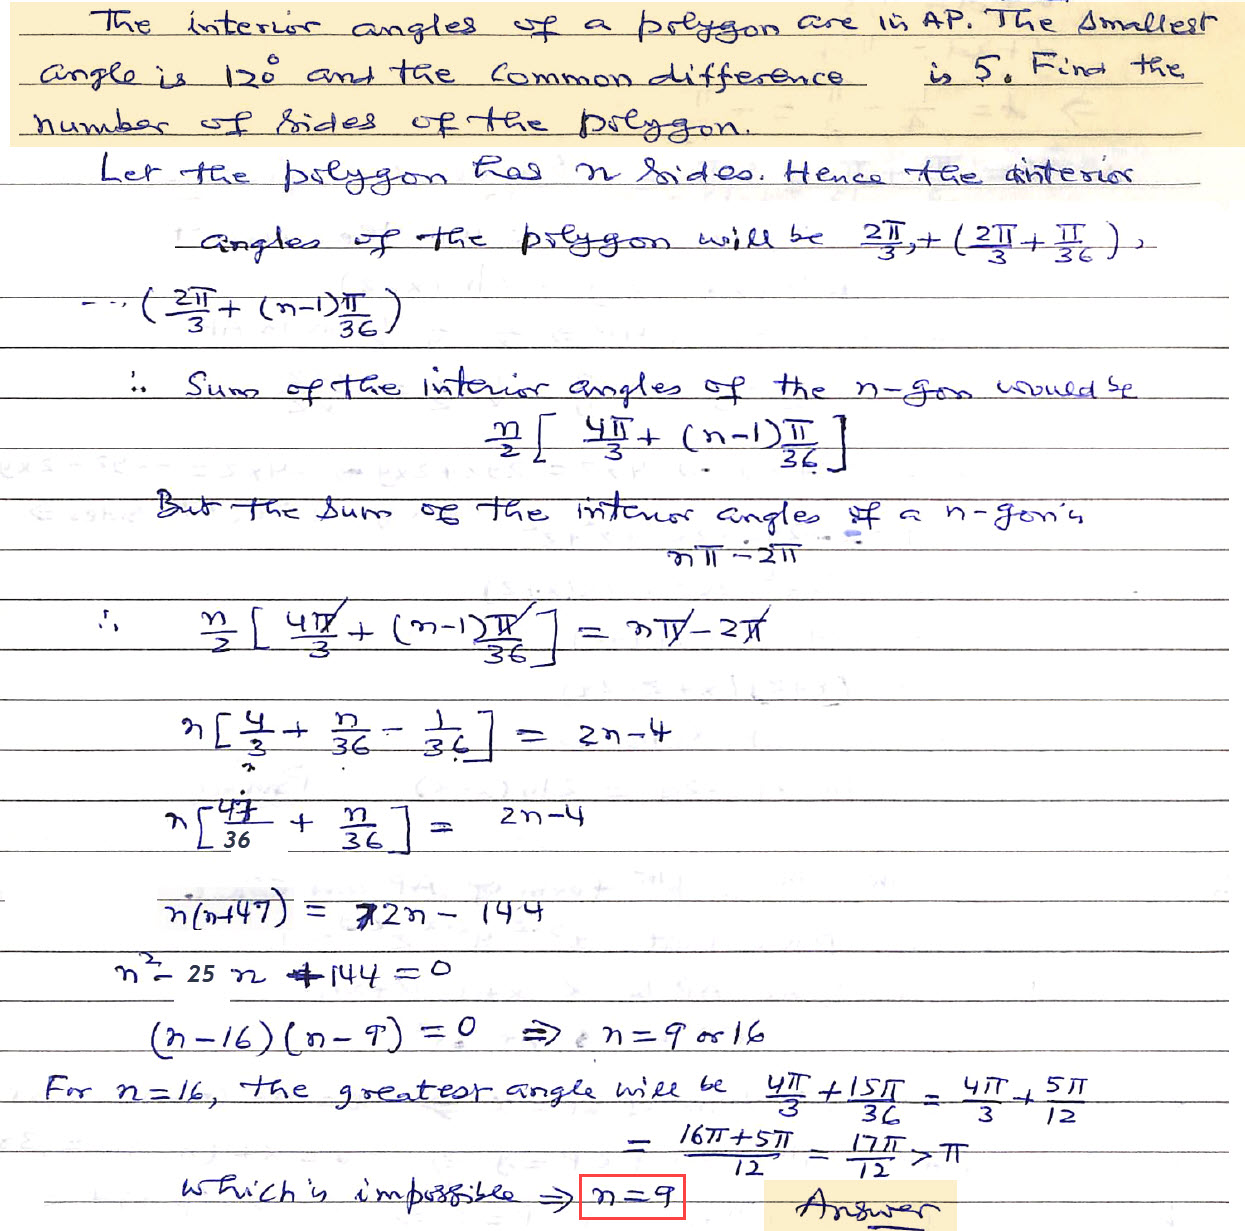 The interior angles of a polygon are in AP. The smallest
angle is 120° and the common difference is 5. Find the
number of sides of the polygon.
Let the polygon has n sides. Hence the interior
angles of the polygon will be 2π/3, + (2π/3 + π/36),
---- (2π/3 + (n-1)π/36)
∴ Sum of the interior angles of the n-gon would be
n/2 [ 4π/3 + (n-1)π/36 ]
But the sum of the interior angles of a n-gon is
nπ - 2π
∴ n/2 [ 4π/3 + (n-1)π/36 ] = nπ - 2π
n[ 4/3 + n/36 - 1/36 ] = 2n-4
n[ 47/36 + n/36 ] = 2n-4
n(n+47) = 72n - 144
n² - 25 n + 144 = 0
(n-16)(n-9) = 0 ⇒ n = 9 or 16
For n=16, the greatest angle will be 4π/3 + 15π/36 = 4π/3 + 5π/12
= 16π+5π/12 = 17π/12 > π
which is impossible ⇒ n=9
Answer